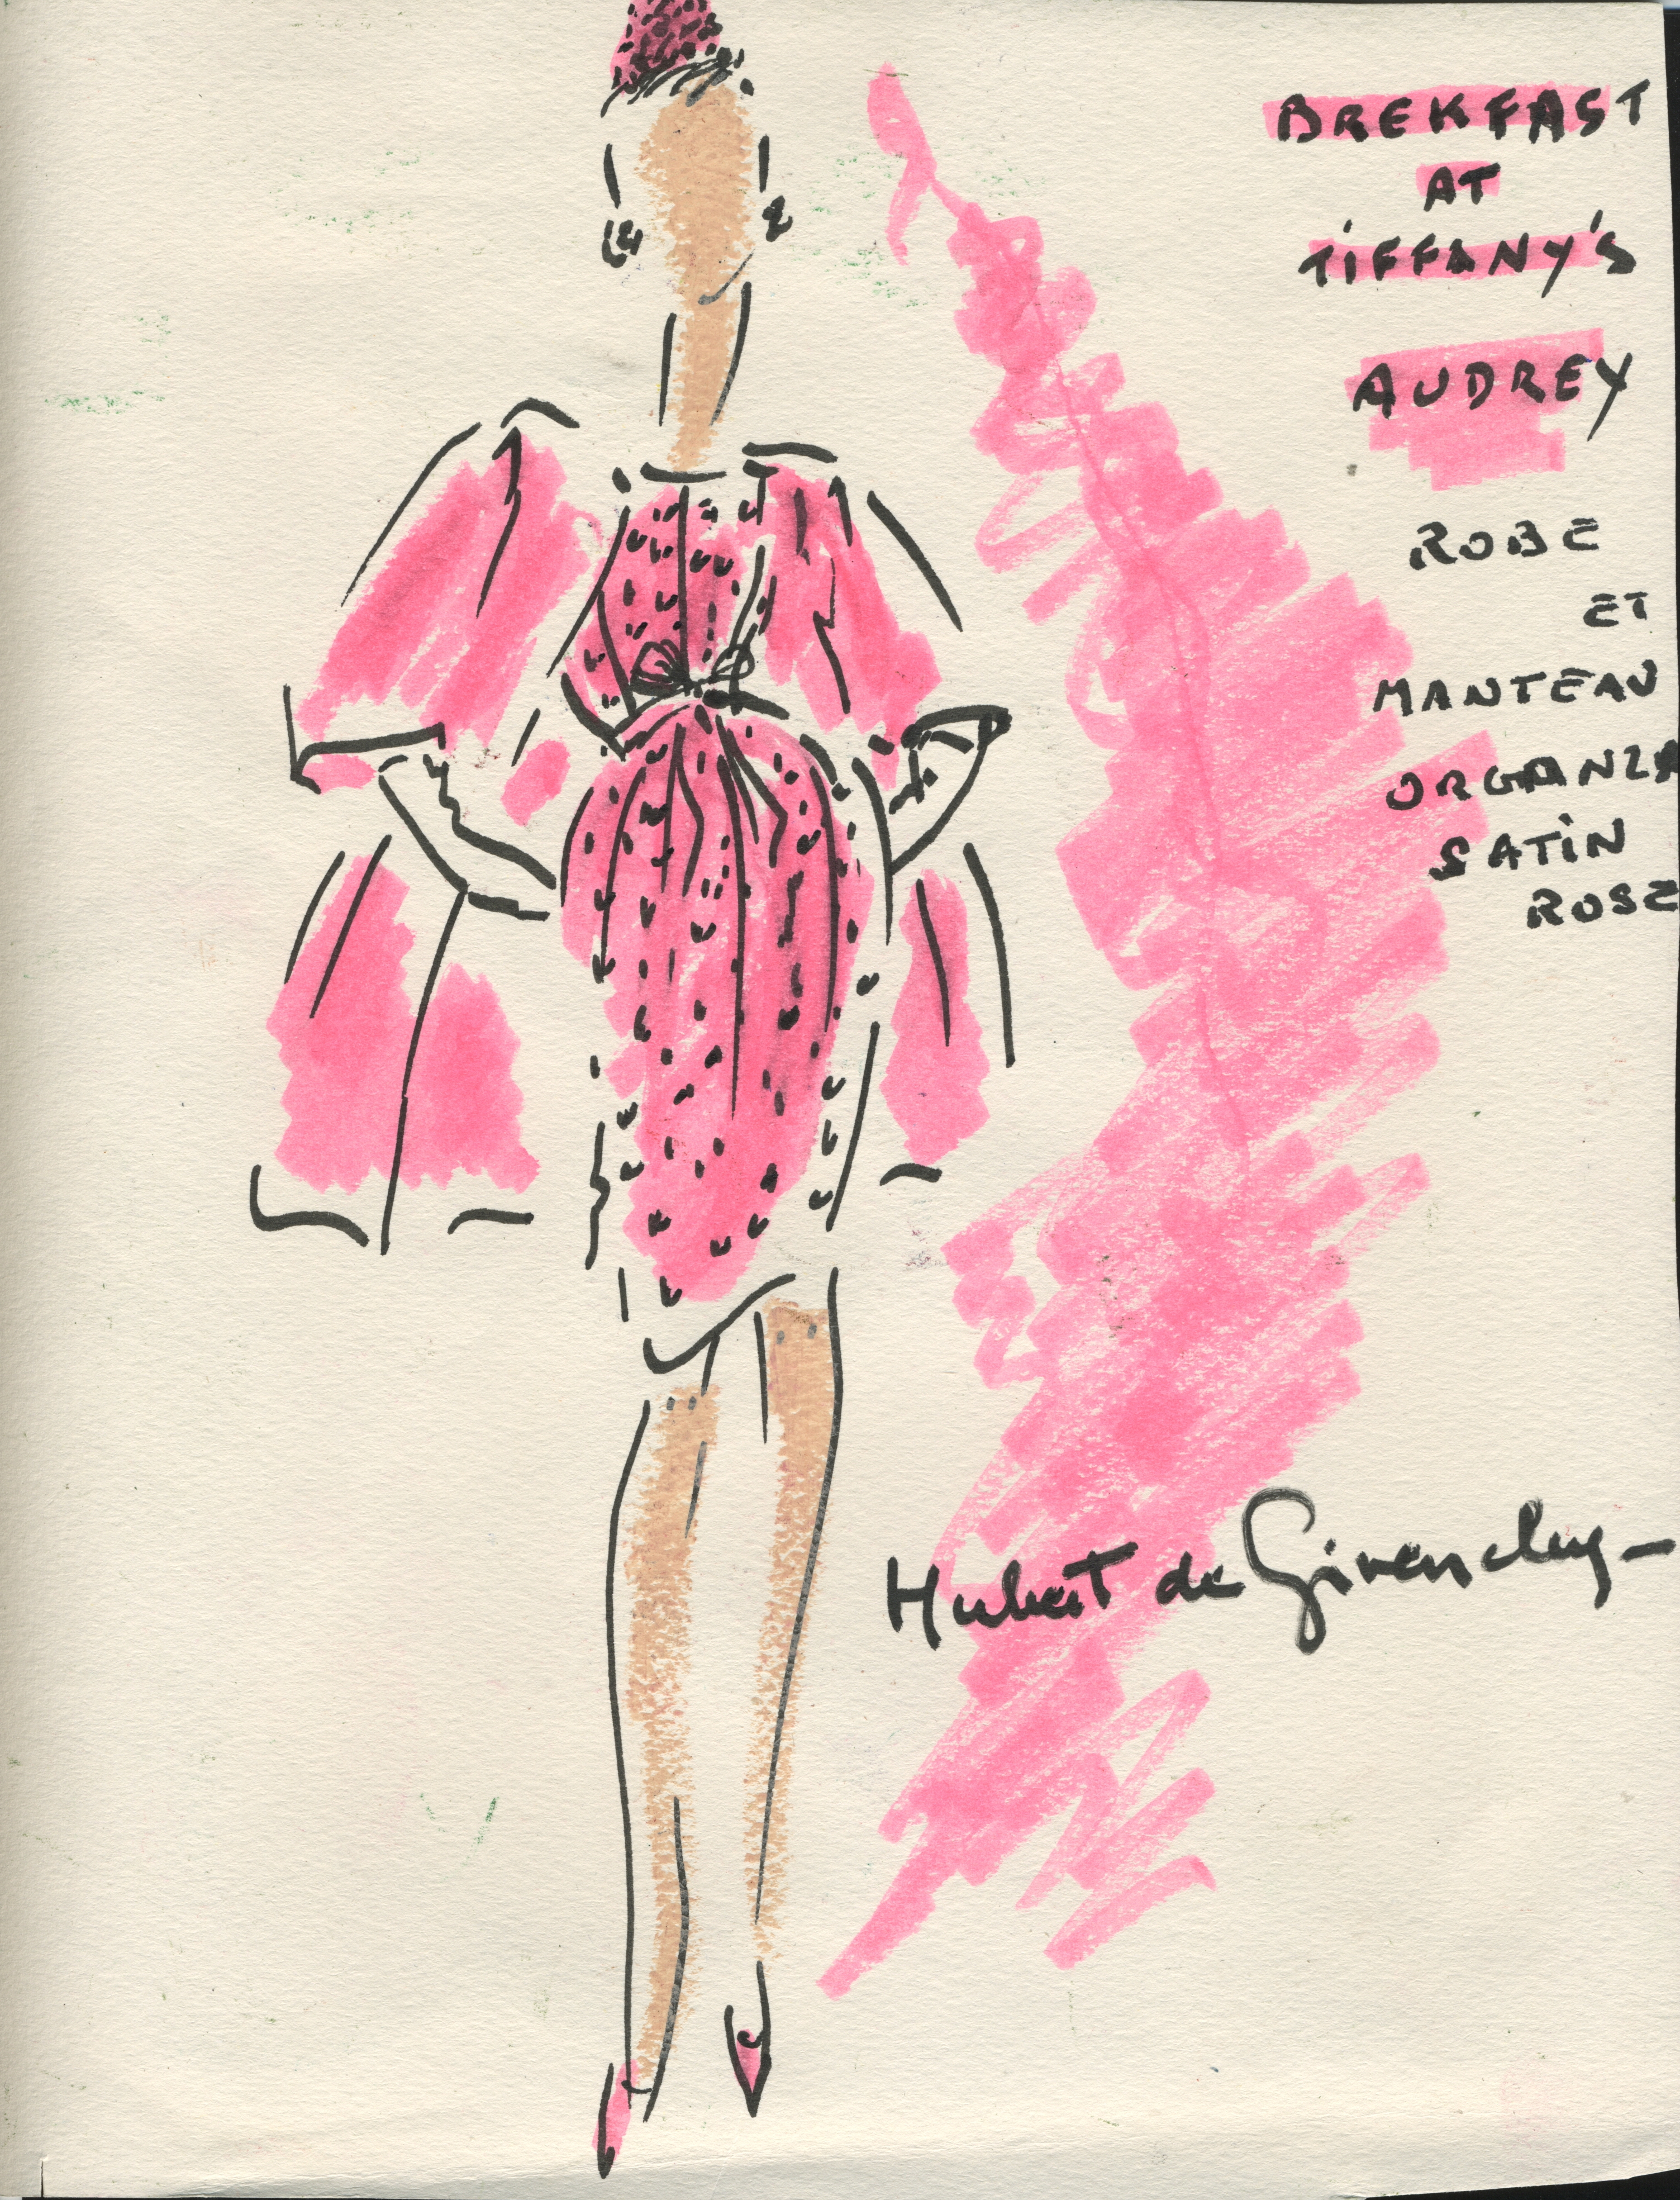 BREKFAST
AT
TIFFANY'S
AUDREY
ROBE
ET
MANTEAU
ORGANZA
SATIN
ROSE
Hubert de Givenchy